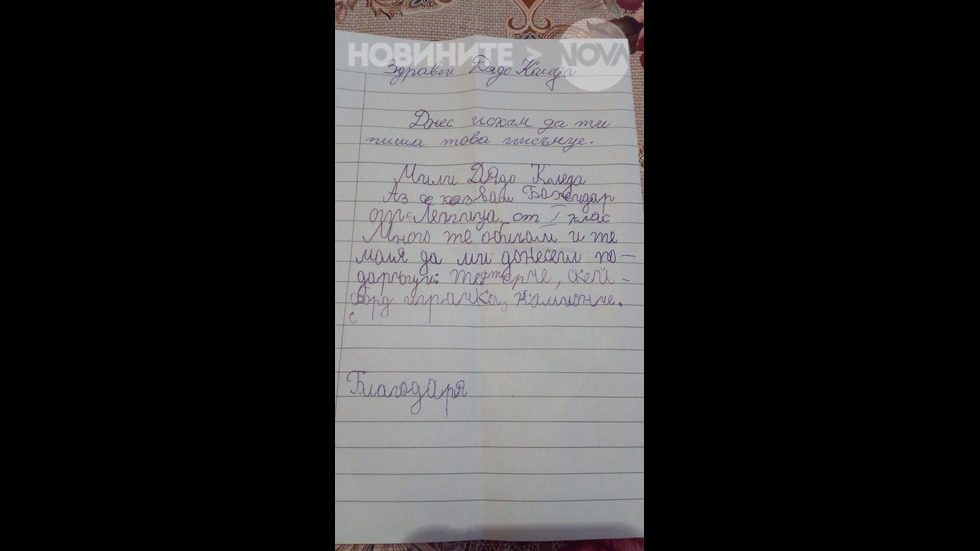 НОВИНИТЕ > NOVA
Здравей Дядо Коледа
Днес искам да ти
пиша това писъмце.
Мили Дядо Коледа
Аз се казвам Божидар
от I клас
Много те обичам и те
моля да ми донесеш по-
даръци: тефтерче, скей-
борд играчка, камионче.
с
Благодаря